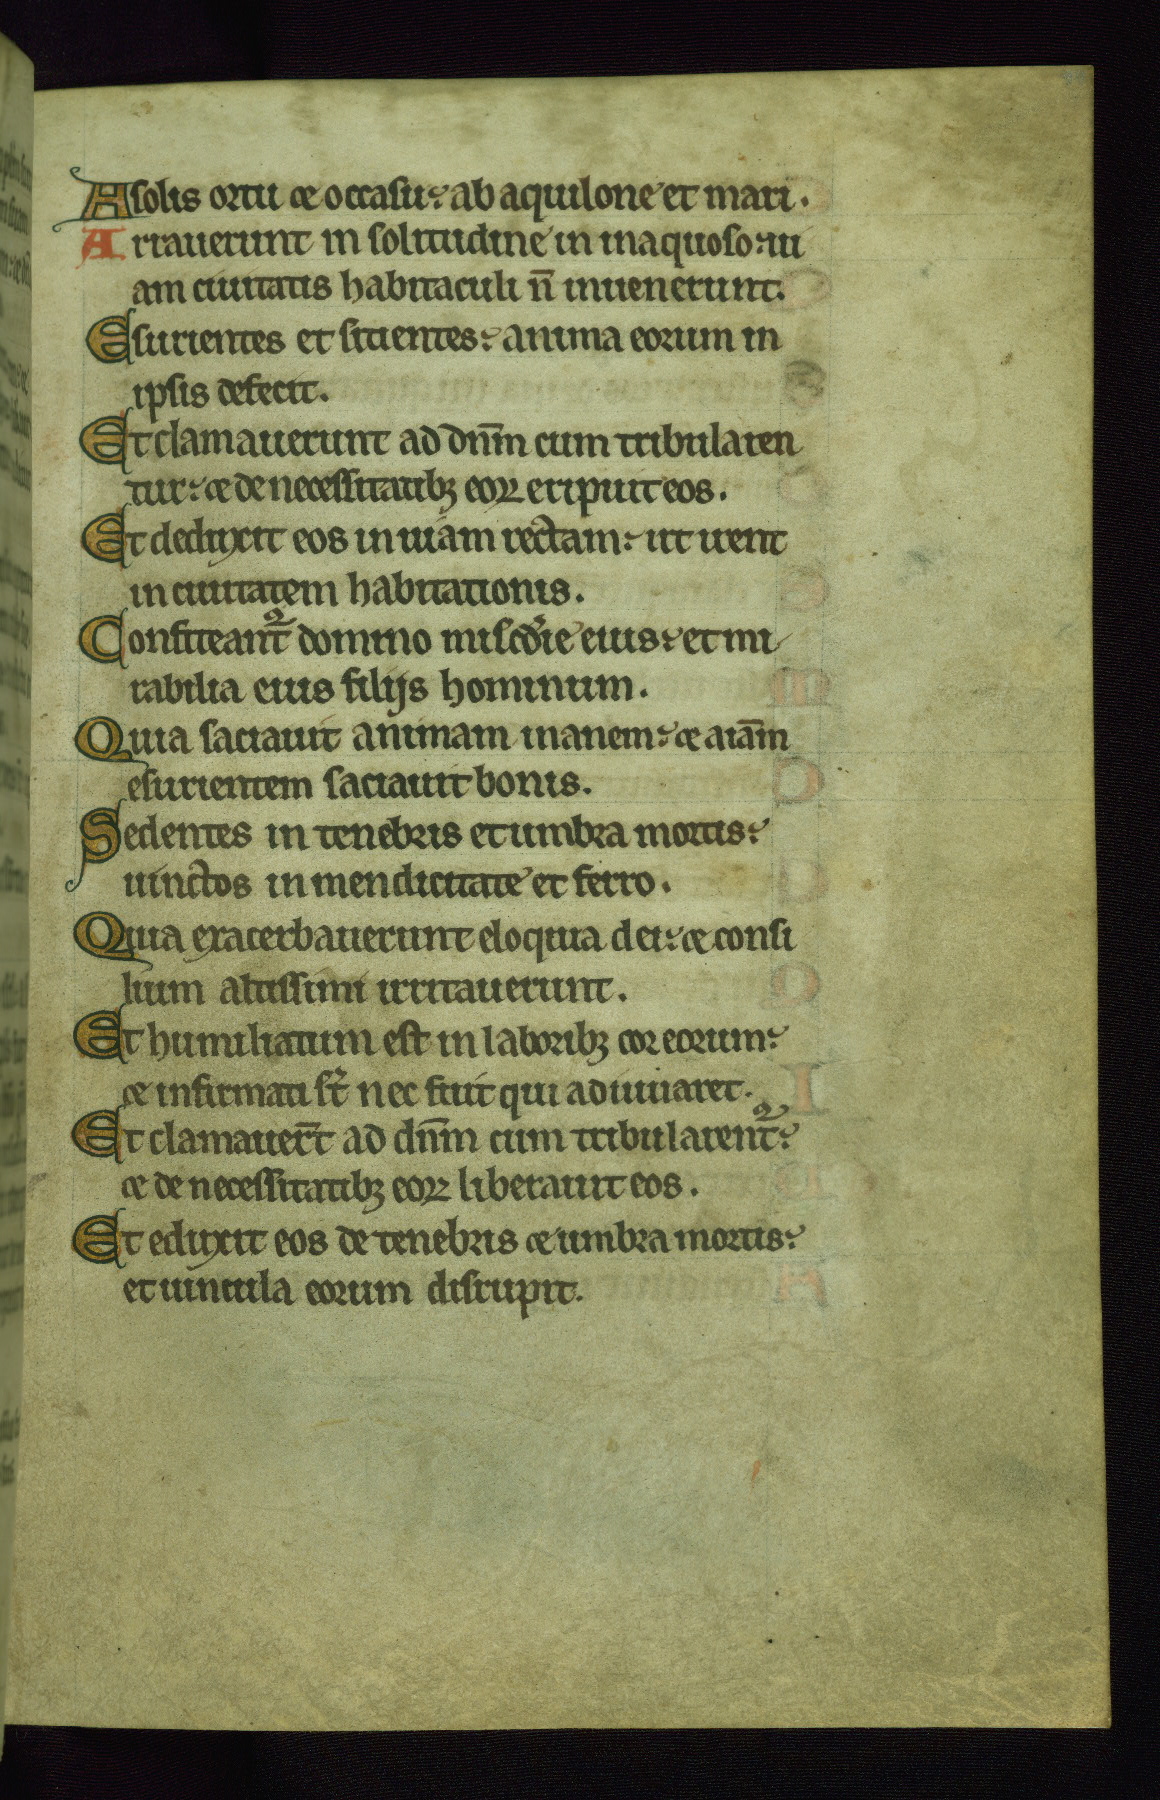 A solis ortu ⁊ occasu: ab aquilone et mari.
A rrauerunt in solitudine in inaquoso: ui
am ciuitatis habitaculi nō inuenerunt.
Esurientes et sitientes: anima eorum in
ipsis defecit.
Et clamauerunt ad dn̄m cum tribularen
tur: ⁊ de necessitatibꝫ eoꝝ eripuit eos.
Et deduxit eos in uiam rectam: ut irent
in ciuitatem habitationis.
Confiteant᷑ domino misc̄die eius: et mi
rabilia eius filijs hominum.
Quia saciauit animam inanem: ⁊ aīam
esurientem saciauit bonis.
Sedentes in tenebris et umbra mortis:
uinctos in mendicitate et ferro.
Quia exacerbauerunt eloquia dei: ⁊ consi
lium altissimi irritauerunt.
Et humiliatum est in laboribꝫ cor eorum:
⁊ infirmati st̄ nec fuit qui adiuuaret.
Et clamauer̄t ad dn̄m cum tribularent᷑:
⁊ de necessitatibꝫ eoꝝ liberauit eos.
Et eduxit eos de tenebris ⁊ umbra mortis:
et uincula eorum disrupit.